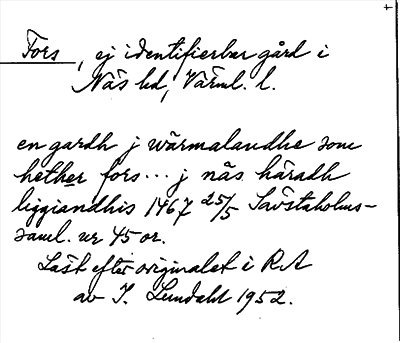 +
Fors, ej identifierbar gård i
Näs hd, Värml. l.
en gardh j wärmalandhe som
hether fors... j näs häradh
liggiandhis 1467 25/5 Sävstaholms-
saml. nr 45 or.
Läst efter originalet i RA
av I. Lundahl 1952.